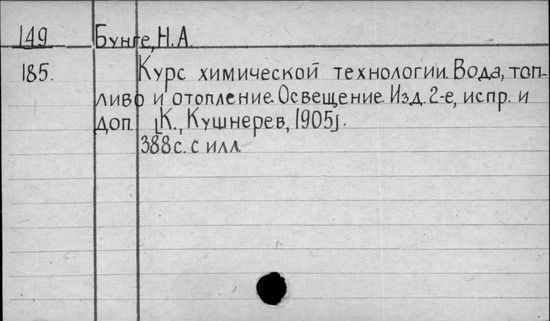 149 Бунге, Н.А.
185. Курс химической технологии. Вода, топ-
ливо и отопление. Освещение. Изд. 2-е, испр. и
доп. [К., Кушнерев, 1905].
388с. с илл.